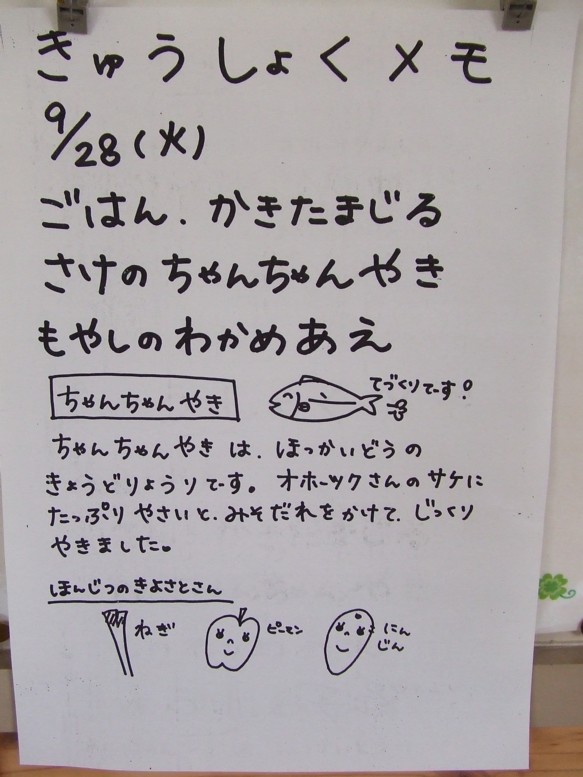 きゅうしょくメモ
9/28(火)
ごはん.かきたまじる
さけのちゃんちゃんやき
もやしのわかめあえ
ちゃんちゃんやき
てづくりでーす!
ちゃんちゃんやきは、ほっかいどうの
きょうどりょうりでーす。オホーツクさんのサケに
たっぷりやさいと、みそだれをかけて、じっくり
やきました。
ほんじつのきよさとさん
ねぎ
ピーマン
にん
じん